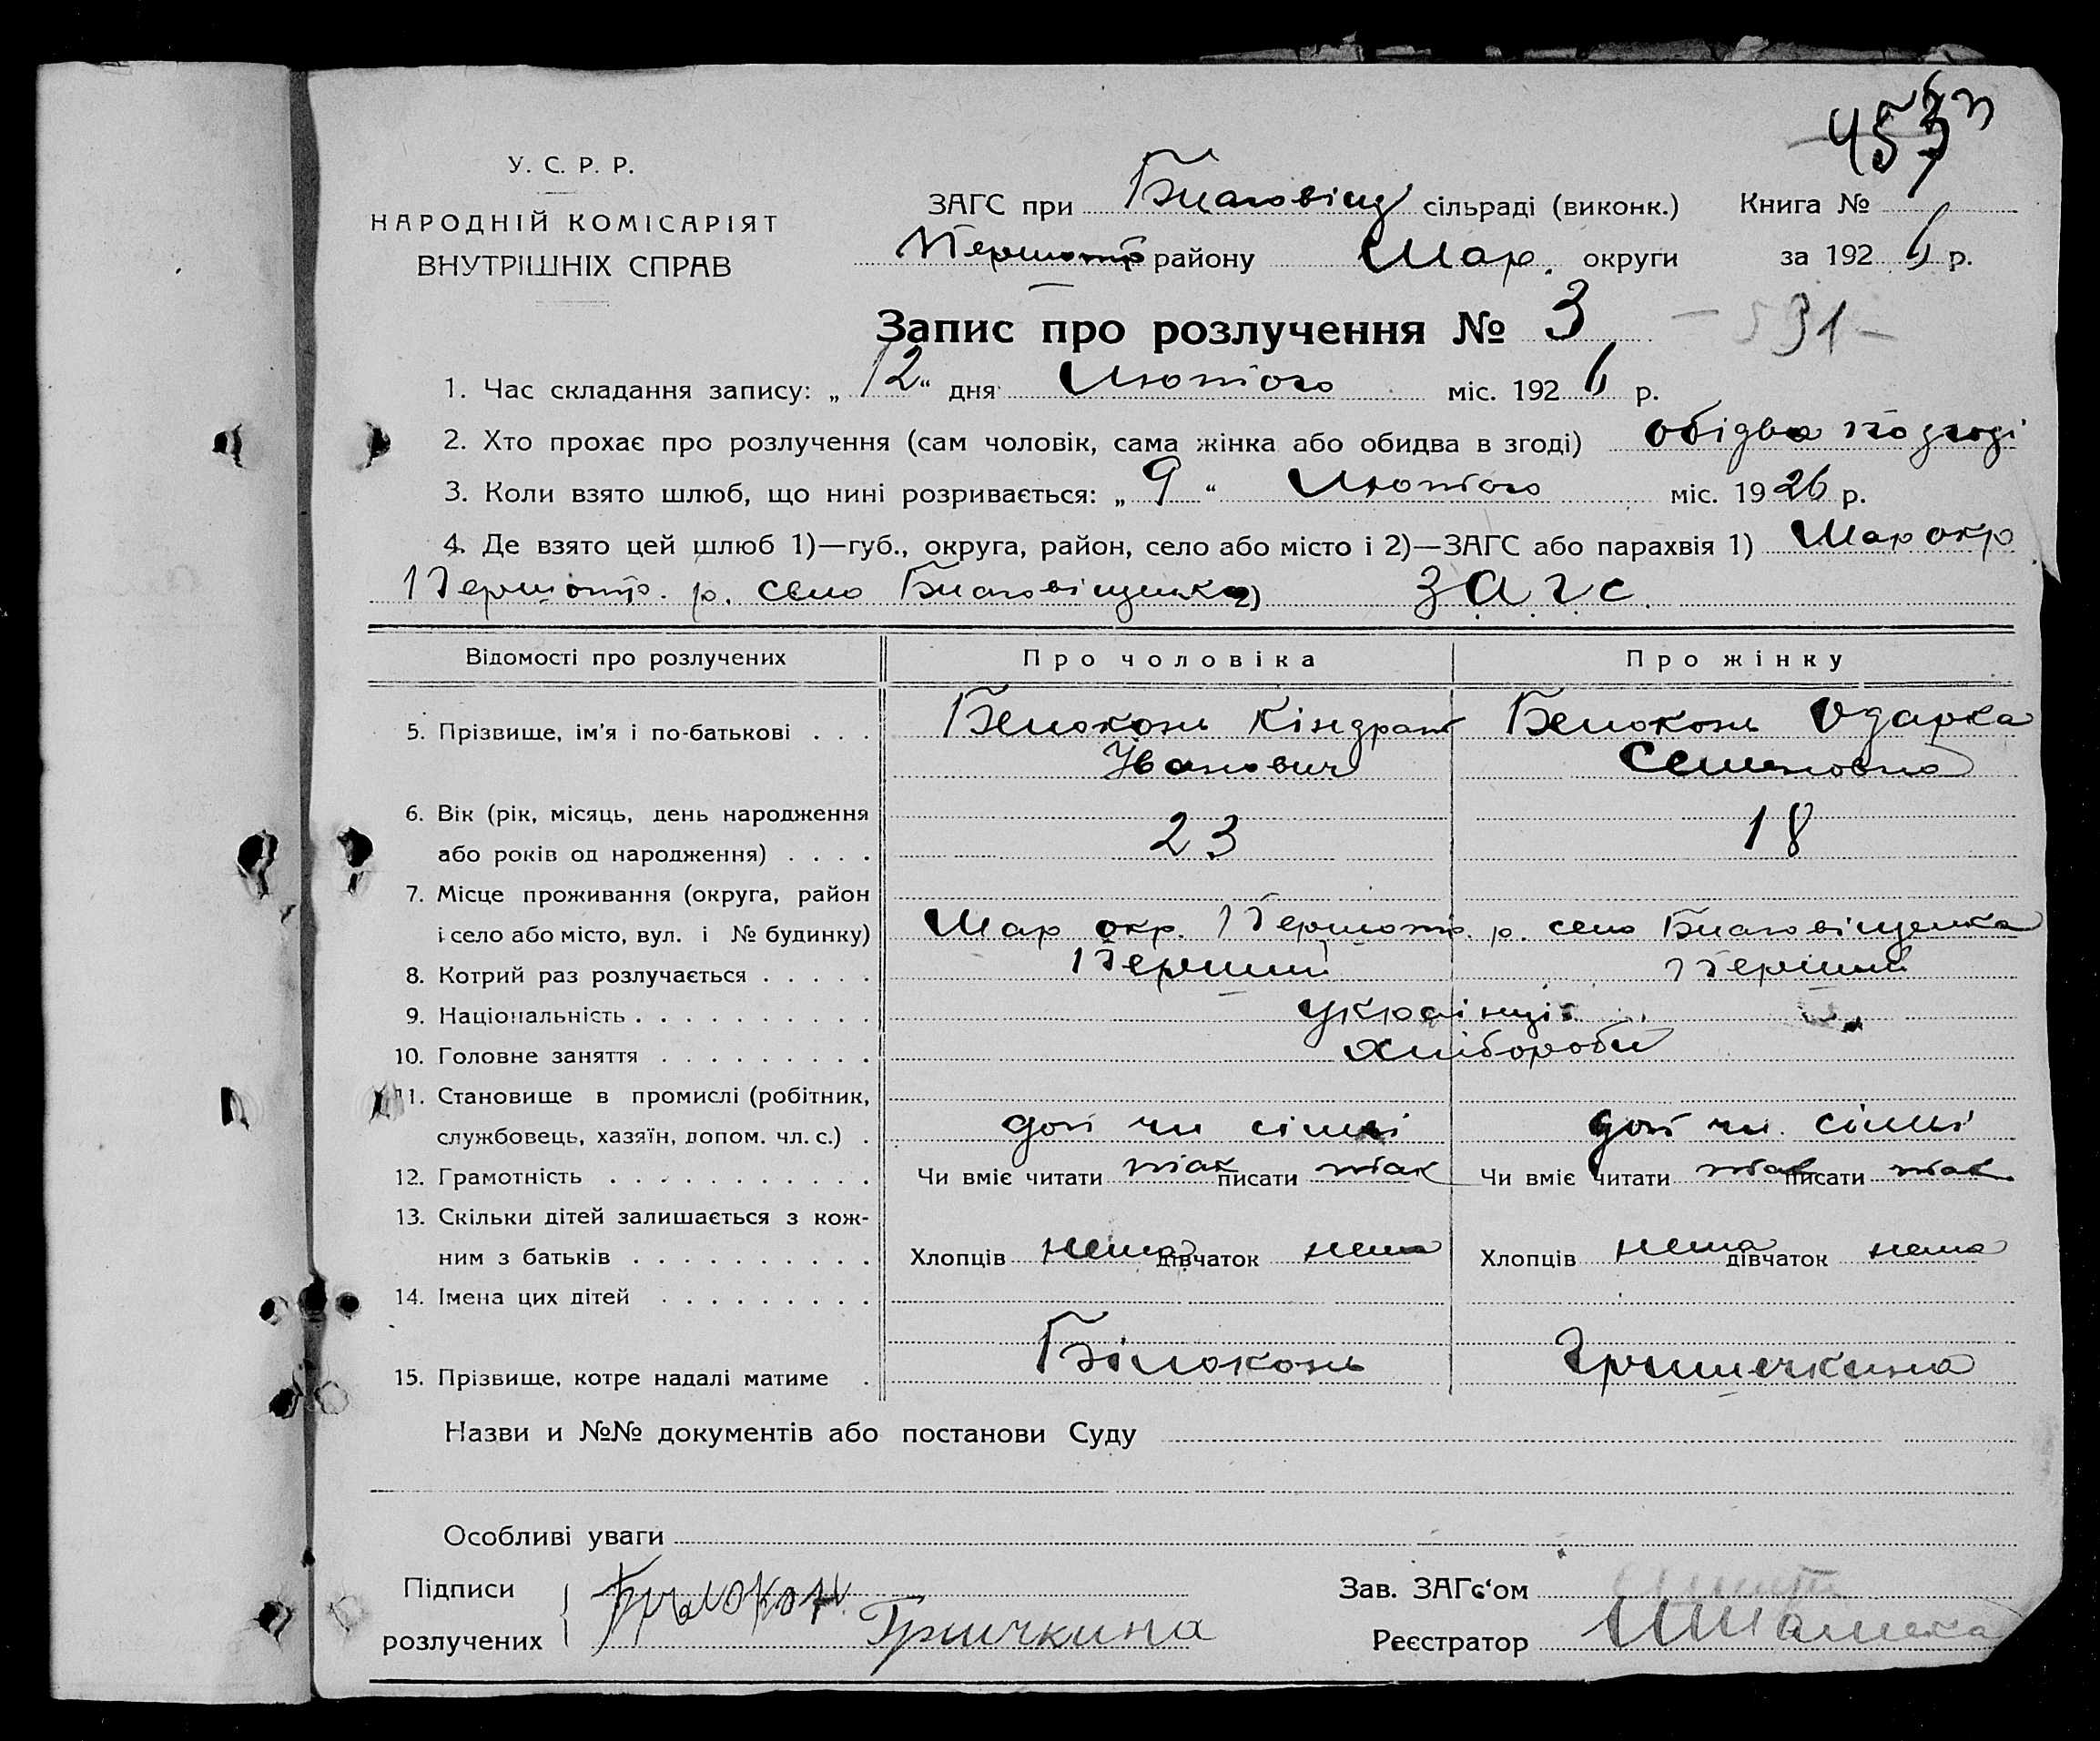 У. С. Р. Р.
НАРОДНІЙ КОМІСАРІЯТ
ВНУТРІШНІХ СПРАВ
ЗАГС при Благовіщ сільраді (виконк.) Книга №
Першотр району Мар. округи за 1926 р.
Запис про розлучення № 3 - 531 -
1. Час складання запису: „12“ дня Лютого міс. 1926 р.
2. Хто прохає про розлучення (сам чоловік, сама жінка або обидва в згоді) обідва по згоді
3. Коли взято шлюб, що нині розривається: „9“ Лютого міс. 1926 р.
4. Де взято цей шлюб 1)—губ., округа, район, село або місто і 2)—ЗАГС або парахвія 1) Мар окр
Першотр. р. село Благовіщенка 2) З А Г С.
Відомості про розлучених Про чоловіка Про жінку
5. Прізвище, ім'я і по-батькові . . . Белоконь Кіндрат Белоконь Одарка
Іванович Семеновна
6. Вік (рік, місяць, день народження
або років од народження) . . . . 23 18
7. Місце проживання (округа, район
і село або місто, вул. і № будинку) Мар окр. Першотр. р. село Благовіщенка
8. Котрий раз розлучається . . . . . Перший Перший
9. Національність . . . . . . . . . . українці
10. Головне заняття . . . . . . . . . хлібороби
11. Становище в промислі (робітник,
службовець, хазяїн, допом. чл. с.) . доп чл сімьі доп чл. сімьі
12. Грамотність . . . . . . . . . . . Чи вміє читати так писати так Чи вміє читати так писати так
13. Скільки дітей залишається з кож-
ним з батьків . . . . . . . . . . Хлопців нема дівчаток нема Хлопців нема дівчаток нема
14. Імена цих дітей . . . . . . . . .
15. Прізвище, котре надалі матиме . Білоконь Гришечкина
Назви и №№ документів або постанови Суду
Особливі уваги
Підписи Зав. ЗАГс‘ом
розлучених Гричкина Реєстратор